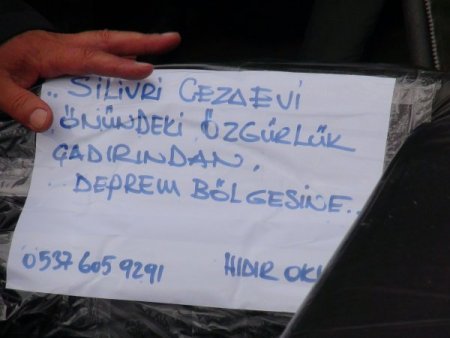 .. SİLİVRİ CEZAEVİ
ÖNÜNDEKİ ÖZGÜRLÜK
ÇADIRINDAN.
DEPREM BÖLGESİNE..
0537 605 9291 HIDIR